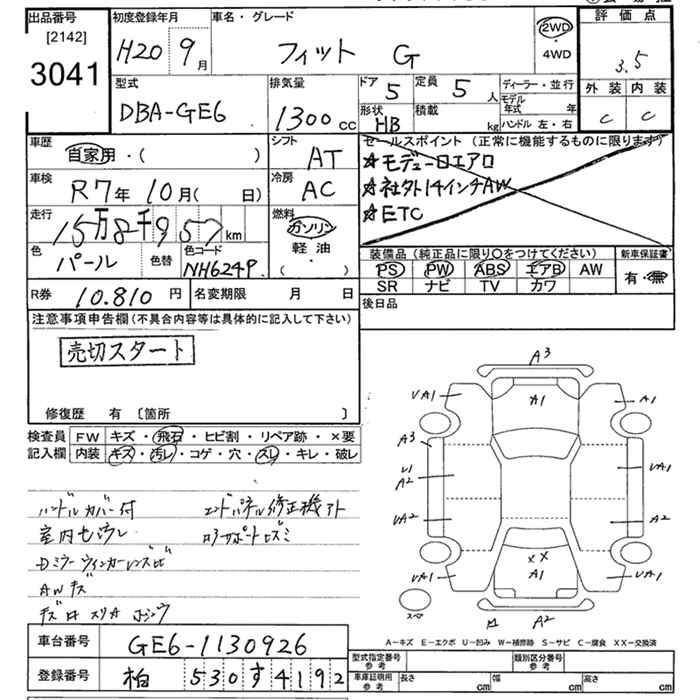 出品番号 初度登録年月 車名・グレード 評価点
[2142]
3041 H20 9月 フィット G 2WD・4WD 3.5
型式 排気量 ドア 5 定員 5人 ディーラー・並行 外装 内装
DBA-GE6 1300cc 形状 HB 積載 kg モデル年式 年 C C
ハンドル 左・右
車歴 自家用・( ) シフト AT セールスポイント (正常に機能するものに限ります)
☆モデューロエアロ
車検 R7年10月( 日) 冷房 AC ☆社外14インチAW
走行 15万8千957km 燃料 ガソリン ☆ETC
軽油
( )
色 パール 色替 色コード NH624P 装備品 (純正品に限り○をつけてください) 新車保証書
PS PW ABS エアB AW 有・無
SR ナビ TV カワ
R券 10.810円 名変期限 月 日 後日品
注意事項申告欄(不具合内容等は具体的に記入して下さい)
売切スタート
修復歴 有 〔箇所 〕
検査員記入欄 FW キズ・飛石・ヒビ割・リペア跡・×要
内装 キズ・汚レ・コゲ・穴・スレ・キレ・破レ
ハンドルカバー付 エンドパネル修正機アト
A3
VA1 A1 A1
A3 VA1
U1
A2
VA2 A2
XX
VA1 A1 VA1
スペア A2
A-キズ E-エクボ U-凹み W-補修跡 S-サビ C-腐食 XX-交換済
車台番号 GE6-1130926 型式指定番号 参考 類別区分番号 参考
登録番号 柏 530 す 4192 車庫証明用 参考 長さ cm 幅 cm 高さ cm